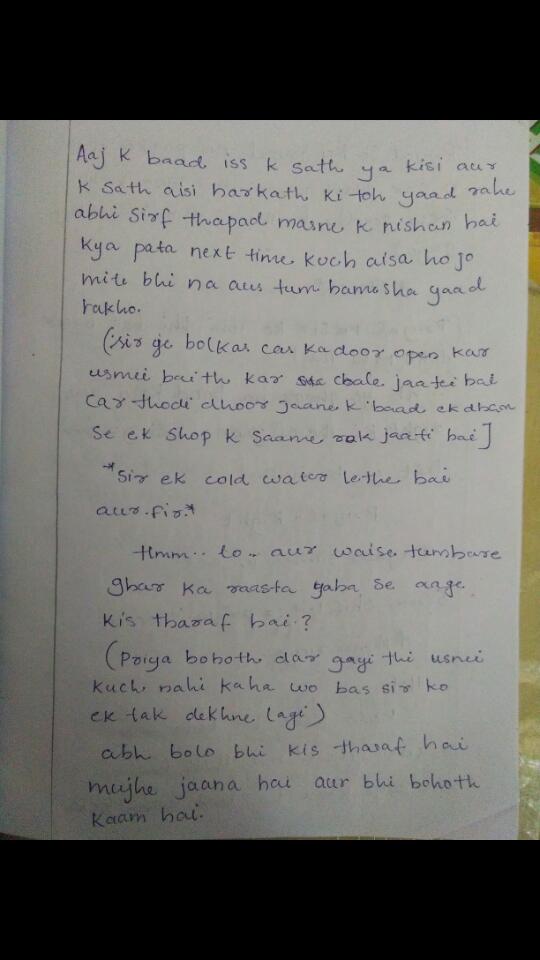 Aaj k baad iss k sath ya kisi aur
k sath aisi harkath ki toh yaad rahe
abhi sirf thapad marne k nishan hai
kya pata next time kuch aisa ho jo
mite bhi na aur tum hamesha yaad
rakho.
(sir ye bolkar car ka door open kar
usmei baith kar chale jaatei hai
car thodi dhoor jaane k baad ek dham
se ek shop k saame rok jaati hai]
*sir ek cold water lethe hai
aur.fir.*
Hmm.. lo.. aur waise tumhare
ghar ka raasta yaha se aage
kis tharaf hai.?
(Priya bohoth dar gayi thi usnei
kuch nahi kaha wo bas sir ko
ek tak dekhne lagi)
abh bolo bhi kis tharaf hai
mujhe jaana hai aur bhi bohoth
kaam hai.